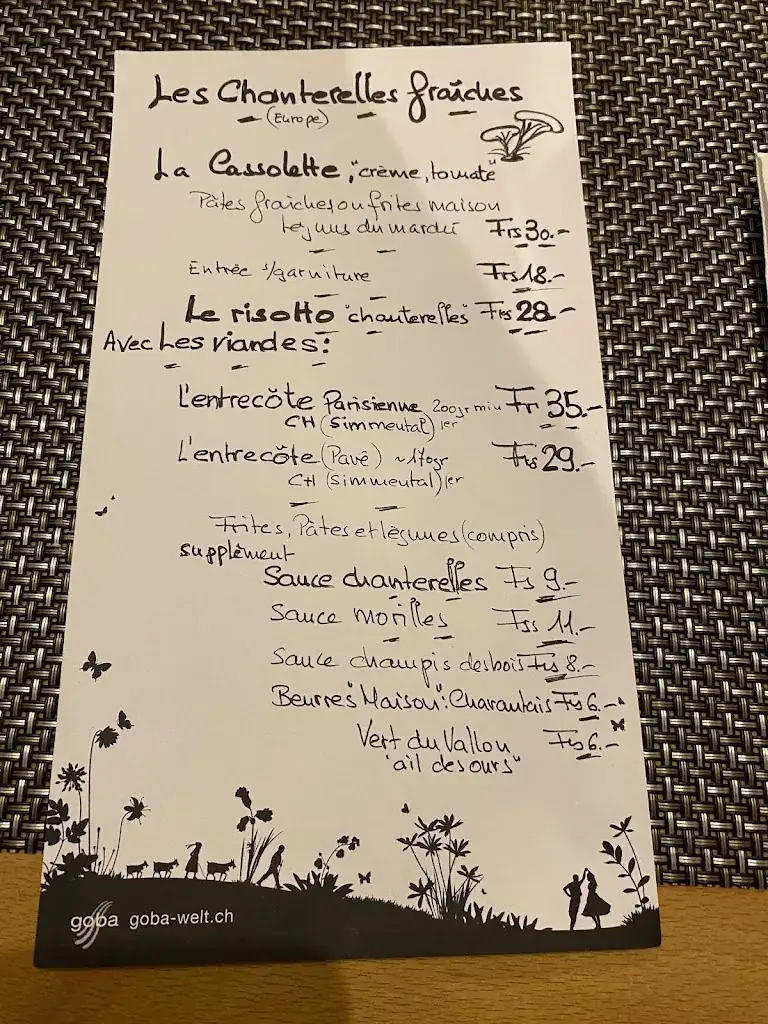 Les Chanterelles fraîches
(Europe)
La Cassolette, "crème, tomate"
Pâtes fraiches ou frites maison
légums du marché Frs 30.-
Entrée s/garniture Frs 18.-
Le risotto "chanterelles" Frs 28.-
Avec Les viandes:
L'entrecôte Parisienne 200gr min Fr 35.-
CH (Simmental) 1er
L'entrecôte (Pavé) ~170gr Frs 29.-
CH (Simmental) 1er
Frites, Pâtes et légumes (compris)
supplément
Sauce chanterelles Fs 9.-
Sauce morilles Frs 11.-
Sauce champis des bois Frs 8.-
Beurres "Maison": Charantais Frs 6.-
Vert du Vallon Frs 6.-
"ail des ours"
goba goba-welt.ch